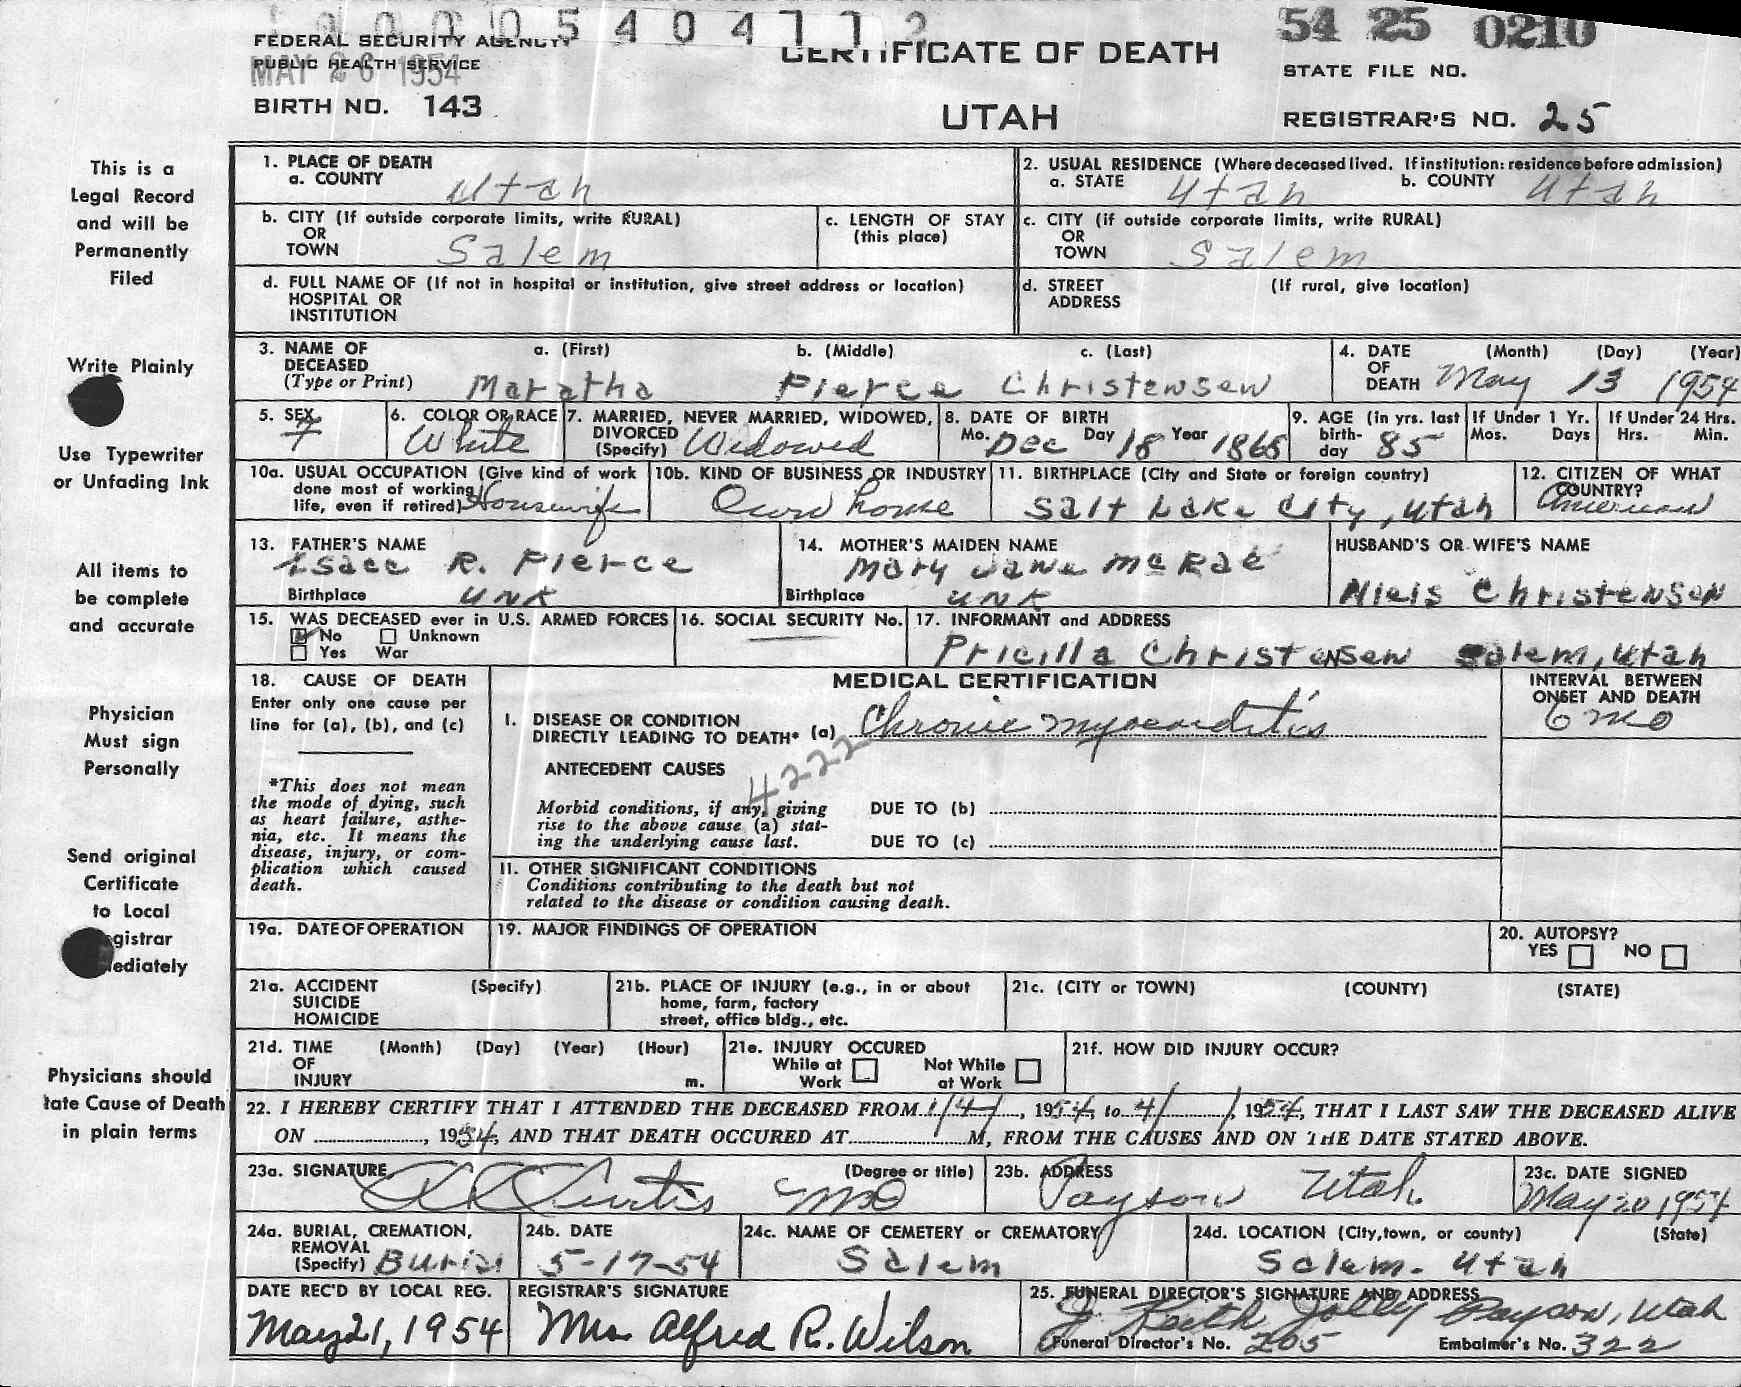 1 0 0 0 5 4 0 4 7 7 2
54 25 0210
FEDERAL SECURITY AGENCY
PUBLIC HEALTH SERVICE
MAY 26 1954
BIRTH NO. 143
CERTIFICATE OF DEATH
UTAH
STATE FILE NO.
REGISTRAR'S NO. 25
This is a
Legal Record
and will be
Permanently
Filed
Write Plainly
Use Typewriter
or Unfading Ink
All items to
be complete
and accurate
Physician
Must sign
Personally
Send original
Certificate
to Local
gistrar
ediately
Physicians should
tate Cause of Death
in plain terms
1. PLACE OF DEATH
a. COUNTY Utah
2. USUAL RESIDENCE (Where deceased lived. If institution: residence before admission)
a. STATE Utah b. COUNTY Utah
b. CITY (If outside corporate limits, write RURAL)
OR
TOWN Salem
c. LENGTH OF STAY
(this place)
c. CITY (if outside corporate limits, write RURAL)
OR
TOWN Salem
d. FULL NAME OF (If not in hospital or institution, give street address or location)
HOSPITAL OR
INSTITUTION
d. STREET (If rural, give location)
ADDRESS
3. NAME OF a. (First) b. (Middle) c. (Last)
DECEASED
(Type or Print) Maratha Pierce Christensen
4. DATE (Month) (Day) (Year)
OF
DEATH May 13 1954
5. SEX
F
6. COLOR OR RACE
White
7. MARRIED, NEVER MARRIED, WIDOWED,
DIVORCED
(Specify) Widowed
8. DATE OF BIRTH
Mo. Dec Day 18 Year 1868
9. AGE (in yrs. last
birth-
day 85
If Under 1 Yr.
Mos. Days
If Under 24 Hrs.
Hrs. Min.
10a. USUAL OCCUPATION (Give kind of work
done most of working
life, even if retired) Housewife
10b. KIND OF BUSINESS OR INDUSTRY
Own home
11. BIRTHPLACE (City and State or foreign country)
Salt Lake City, Utah
12. CITIZEN OF WHAT
COUNTRY?
American
13. FATHER'S NAME
Isacc R. Pierce
Birthplace UNK
14. MOTHER'S MAIDEN NAME
Mary Jane McRae
Birthplace UNK
HUSBAND'S OR WIFE'S NAME
Niels Christensen
15. WAS DECEASED ever in U.S. ARMED FORCES
No Unknown
Yes War
16. SOCIAL SECURITY No.
17. INFORMANT and ADDRESS
Pricilla Christensen Salem, Utah
18. CAUSE OF DEATH
Enter only one cause per
line for (a), (b), and (c)
*This does not mean
the mode of dying, such
as heart failure, asthe-
nia, etc. It means the
disease, injury, or com-
plication which caused
death.
MEDICAL CERTIFICATION
INTERVAL BETWEEN
ONSET AND DEATH
6 mo
I. DISEASE OR CONDITION
DIRECTLY LEADING TO DEATH* (a) Chronic myocarditis
4222
ANTECEDENT CAUSES
Morbid conditions, if any, giving
rise to the above cause (a) stat-
ing the underlying cause last.
DUE TO (b)
DUE TO (c)
11. OTHER SIGNIFICANT CONDITIONS
Conditions contributing to the death but not
related to the disease or condition causing death.
19a. DATE OF OPERATION
19. MAJOR FINDINGS OF OPERATION
20. AUTOPSY?
YES NO
21a. ACCIDENT (Specify)
SUICIDE
HOMICIDE
21b. PLACE OF INJURY (e.g., in or about
home, farm, factory
street, office bldg., etc.
21c. (CITY or TOWN) (COUNTY) (STATE)
21d. TIME (Month) (Day) (Year) (Hour)
OF
INJURY m.
21e. INJURY OCCURED
While at Work Not While at Work
21f. HOW DID INJURY OCCUR?
22. I HEREBY CERTIFY THAT I ATTENDED THE DECEASED FROM 1/4/, 1954, to 4/ /, 1954, THAT I LAST SAW THE DECEASED ALIVE
ON , 1954, AND THAT DEATH OCCURED AT M, FROM THE CAUSES AND ON THE DATE STATED ABOVE.
23a. SIGNATURE (Degree or title)
Curtis MD
23b. ADDRESS
Payson Utah
23c. DATE SIGNED
May 20 1954
24a. BURIAL, CREMATION,
REMOVAL
(Specify) Burial
24b. DATE
5-17-54
24c. NAME OF CEMETERY or CREMATORY
Salem
24d. LOCATION (City, town, or county) (State)
Salem. Utah
DATE REC'D BY LOCAL REG.
May 21, 1954
REGISTRAR'S SIGNATURE
Mrs Alfred R. Wilson
25. FUNERAL DIRECTOR'S SIGNATURE AND ADDRESS
J. Keith Jolley Payson, Utah
Funeral Director's No. 205 Embalmer's No. 322